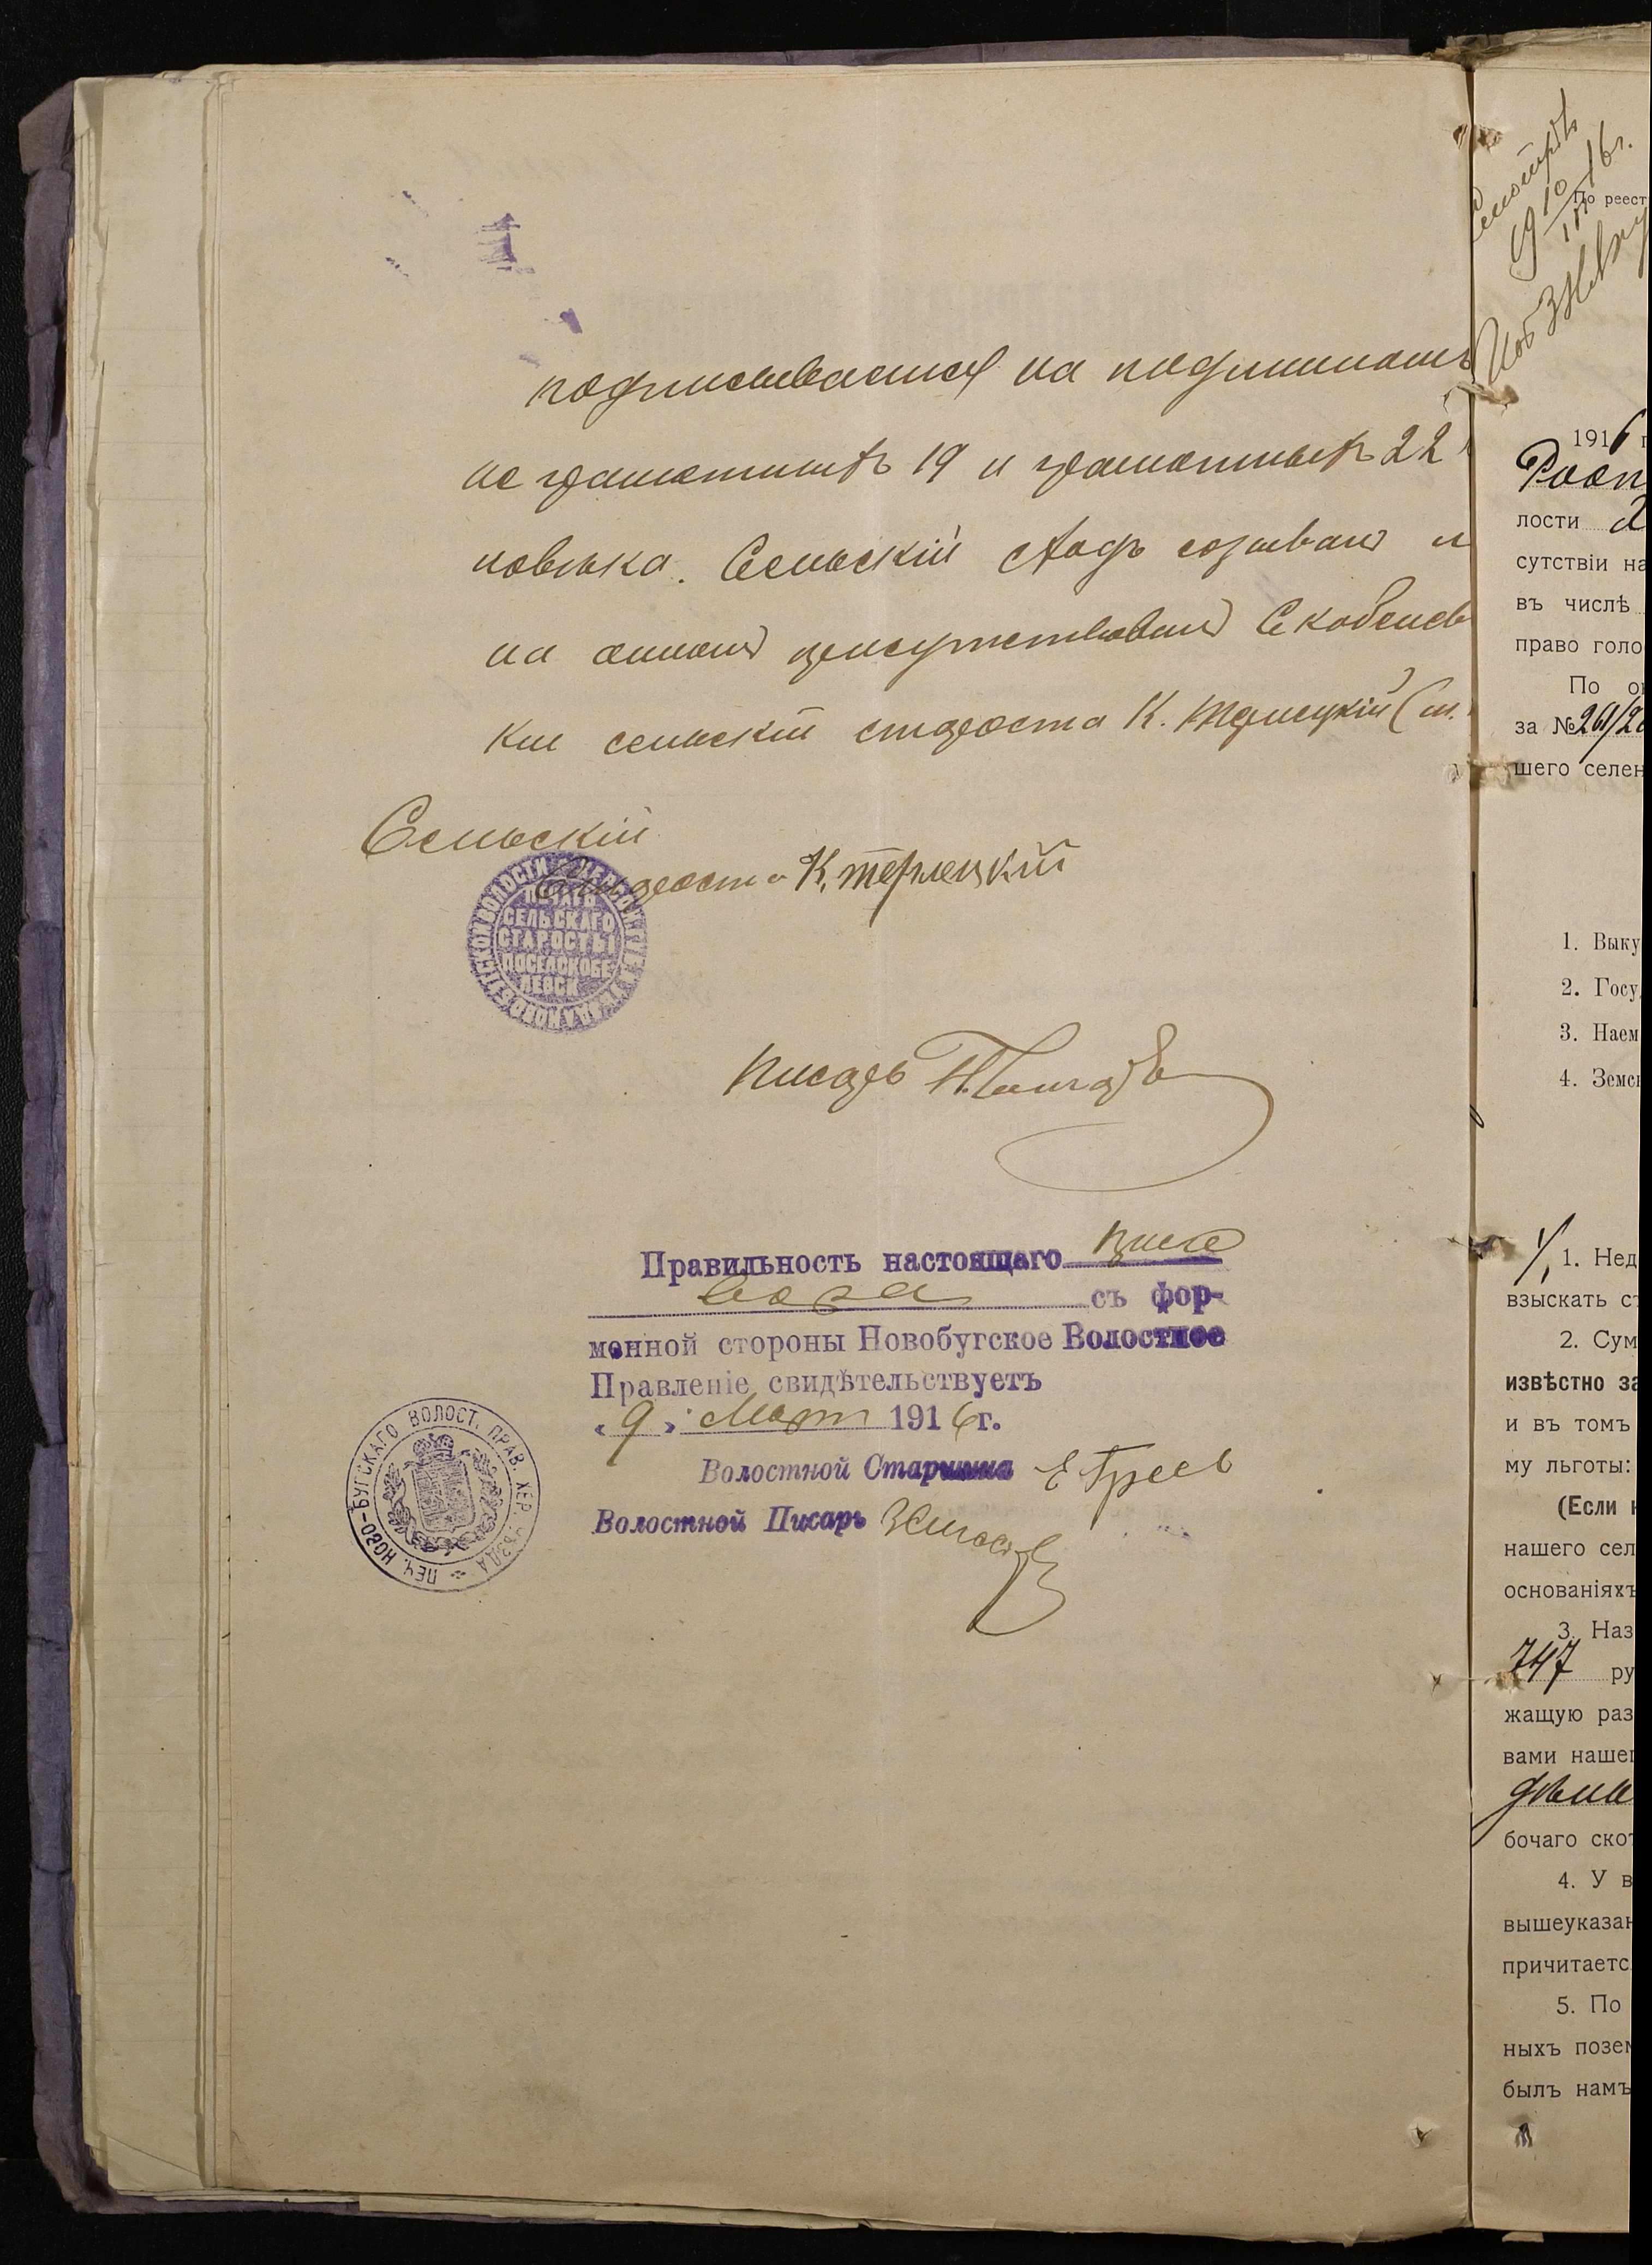 подписавшихся на подлинномъ
не грамотныхъ 19 и грамотныхъ 22
человѣка. Сельскій сходъ созывалъ и
на ономъ присутствовалъ Скобелев
кій сельскій староста К. Терлецкій (м.
Сельскій
Староста К. Терлецкій
ПЕЧАТЬ
СЕЛЬСКАГО
СТАРОСТЫ
ПОС. СКОБЕ
ЛЕВСК
Писарь
Правильность настоящаго приго
вора съ фор-
менной стороны Новобугское Волостное
Правленіе свидѣтельствуетъ
„9“ Март 1916 г.
Волостной Старшина
Волостной Писарь
ПЕЧ. НОВО-БУГСКАГО ВОЛОСТ. ПРАВ. ХЕР. УѢЗДА
Смотрѣлъ
10/III 16 г.
По реест
1916 г
лости
сутствіи на
въ числѣ
право голо
По о
за № 261/2
шего селен
1. Выку
2. Госу
3. Наем
4. Земс
1. Нед
взыскать с
2. Сум
извѣстно за
и въ томъ
му льготы:
(Если н
нашего сел
основаніяхъ
3. Наз
747 ру
жащую раз
вами нашег
бочаго скот
4. У в
вышеуказан
причитаетс
5. По
ныхъ позем
былъ намъ